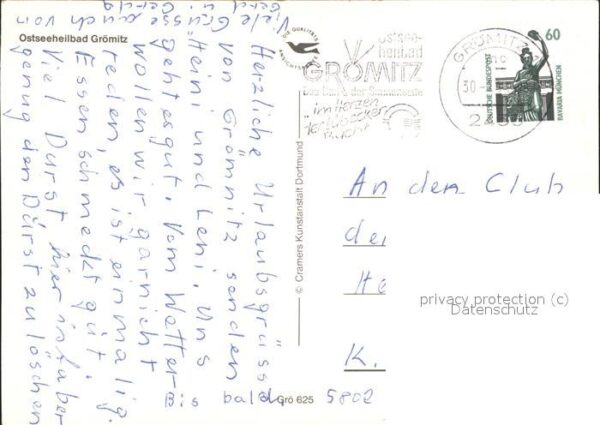 Ostseeheilbad Grömitz
Herzliche Urlaubsgrüsse
von Grömnitz senden
Heini und Leni. Uns
geht es gut. Vom Wetter
wollen wir garnicht
reden, es ist einmalig.
Essen schmeckt gut
Viel Durst hier in faber
genung den Dürst zu löschen
Bis bald
Viele Grüsse auch von
Gerda
© Cramers Kunstanstalt Dortmund
Grö 625
5802
DIE QUALITÄTS
Ostsee-
heilbad
GRÖMITZ
Das Bad der Sonnenseite
im Herzen
der Lübecker
Bucht
GRÖMITZ
30
DEUTSCHE BUNDESPOST
60
BAVARIA MÜNCHEN
An den Club
de
He
K.
privacy protection (c)
Datenschutz